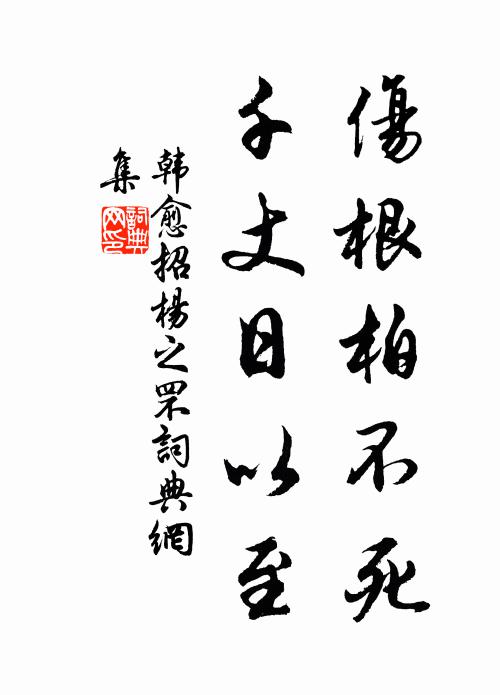 傷根柏不死
千丈日以至
韩愈招楊之罘詞典網
集
詞典
网印